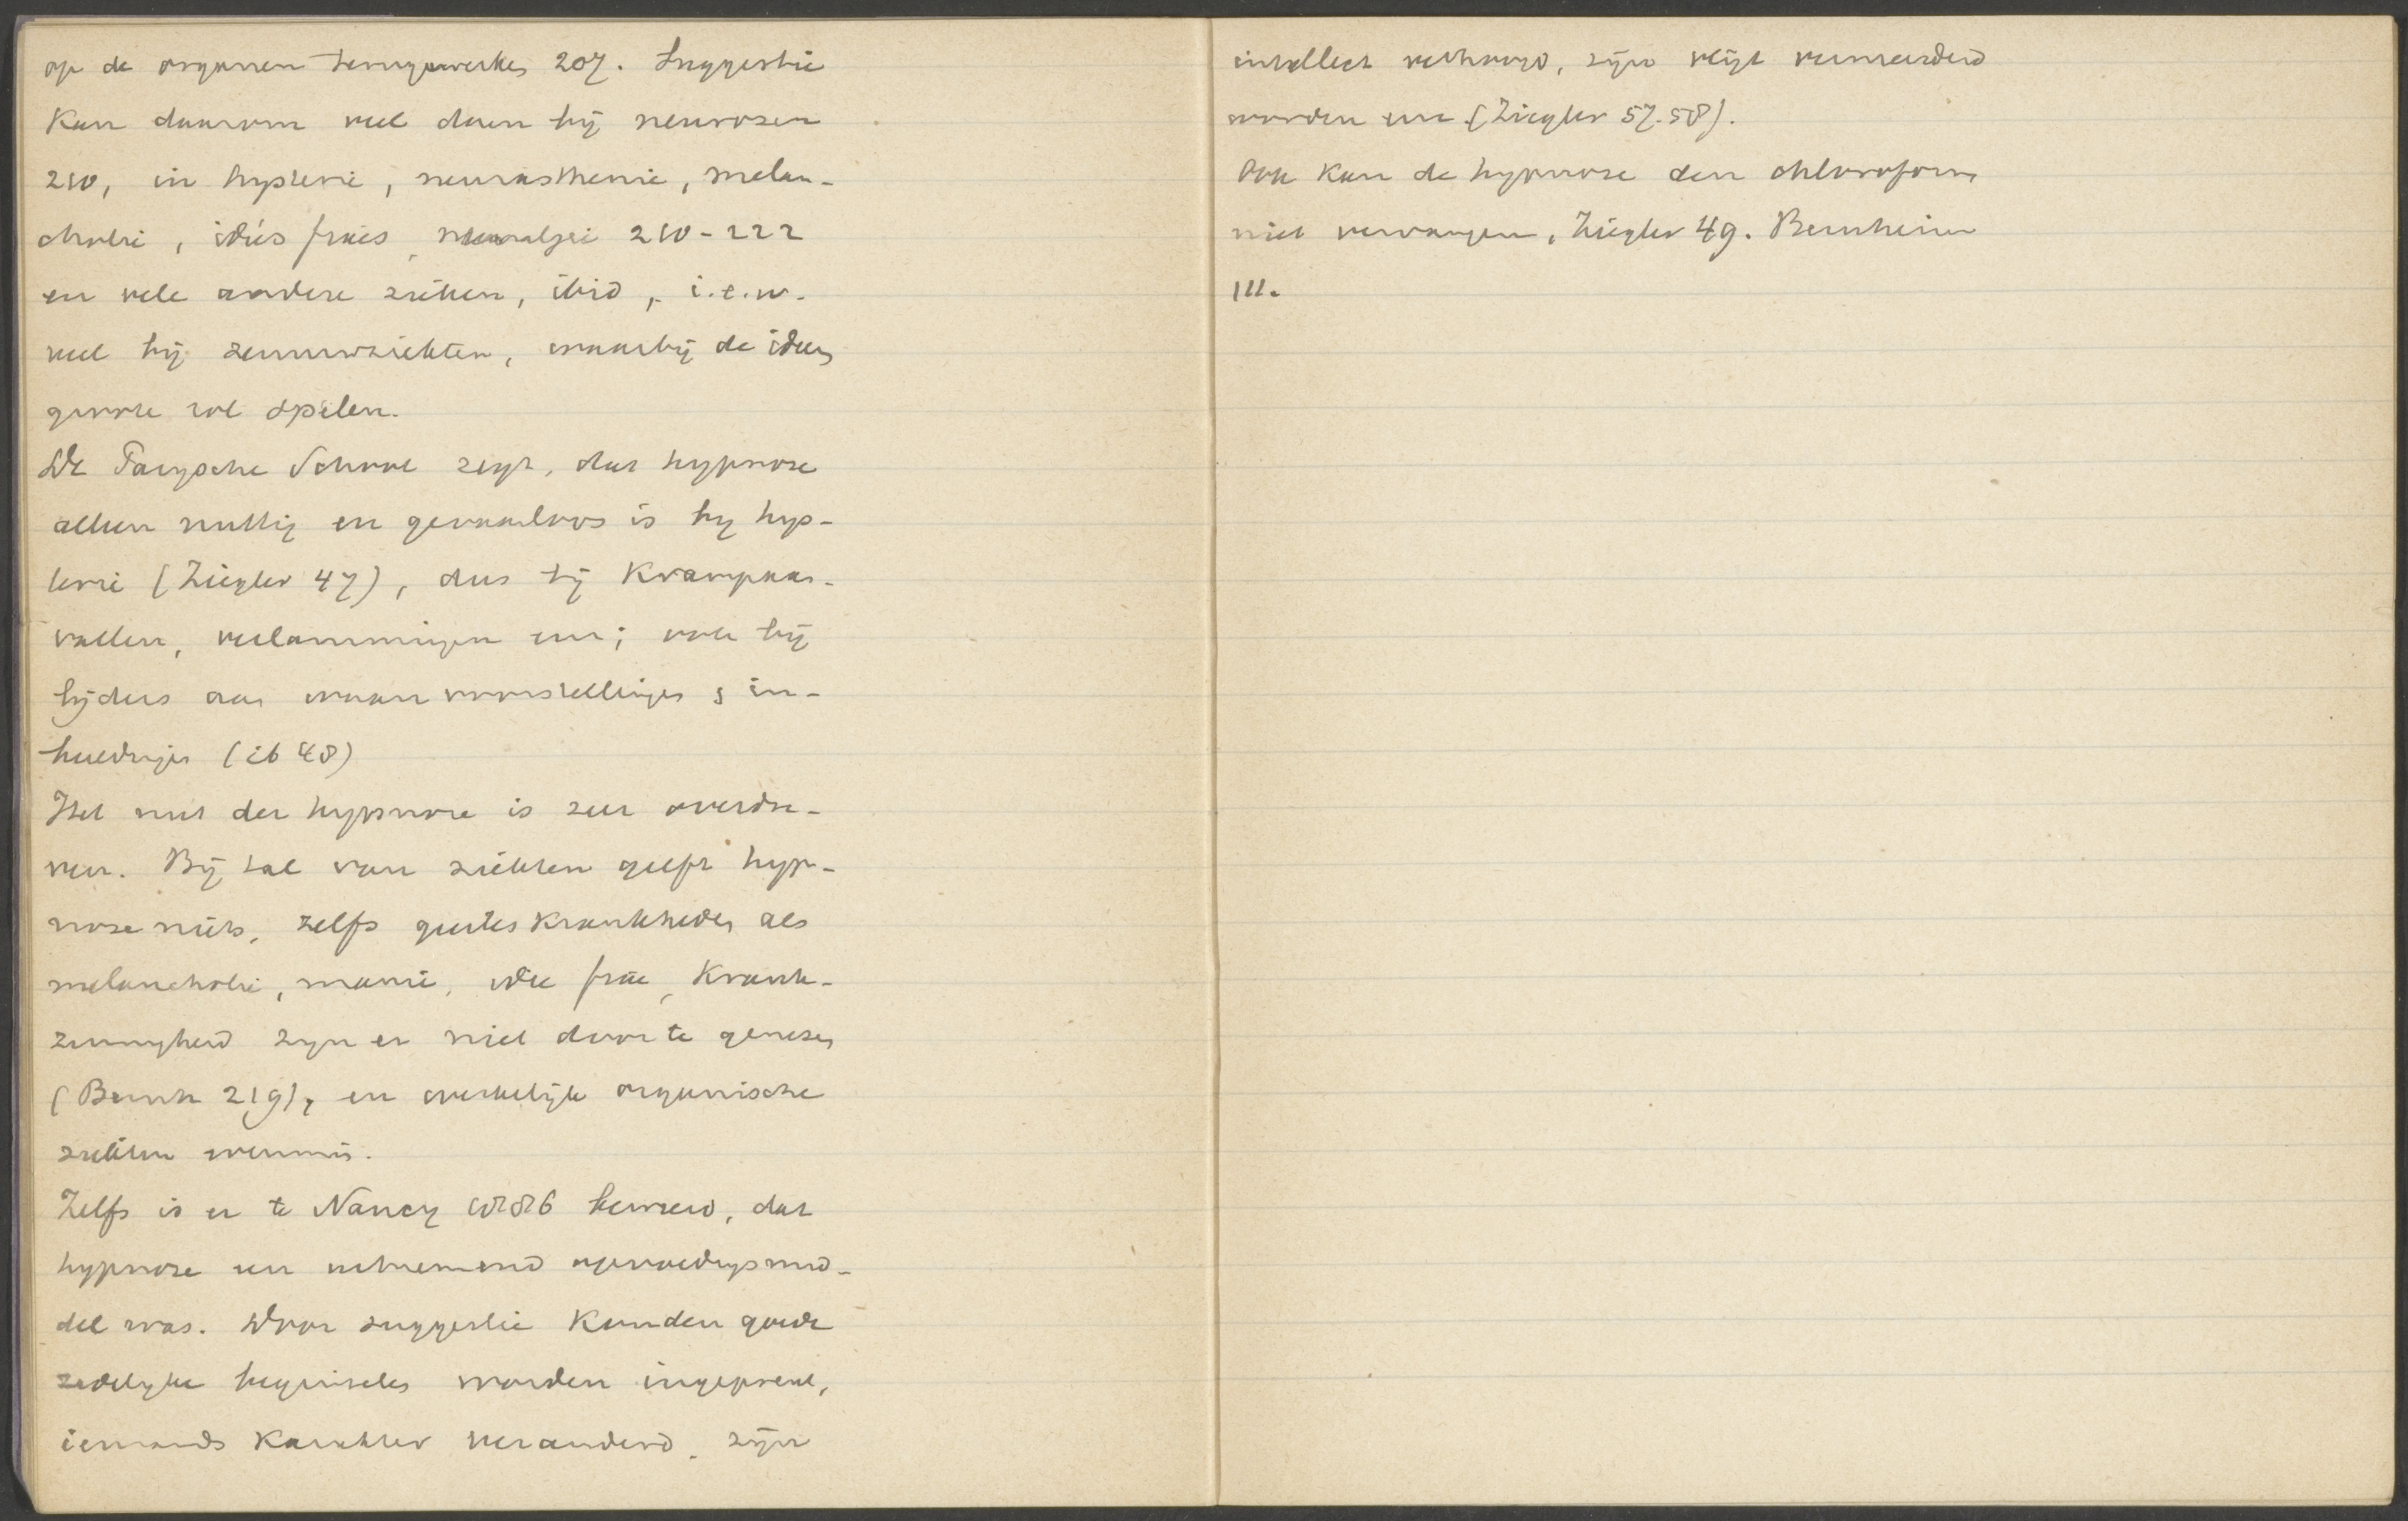 op de organen terugwerken 207. Suggestie
kan daarom veel doen bij neurosen
210, in hysterie, neurasthenie, melan-
cholie, idées fixes, neuralgie 210-222
en vele andere ziekten, ibid, i.e.w.
veel bij zenuwziekten, waarbij de ideen
groote rol spelen.
De Parijsche School zegt, dat hypnose
alleen nuttig en gevaarloos is bij hys-
terie (Ziegler 47), dus bij krampaan-
vallen, verlammingen enz; ook bij
lijders aan waanvoorstellingen & in-
beeldingen (ib 48)
Het nut der hypnose is zeer overdre-
ven. Bij tal van ziekten geeft hyp-
nose niets, zelfs geesteskrankheden als
melancholie, manie, idée fixe, krank-
zinnigheid zijn er niet door te genezen
(Bernh 219), en werkelijk organische
ziekten evenmin.
Zelfs is er te Nancy 1886 beweerd, dat
hypnose een uitnemend opvoedingsmid-
del was. Door suggestie konden goede
zedelijke beginselen worden ingeprent,
iemands karakter veranderd, zijn
intellect verhoogd, zijn vlijt vermeerderd
worden enz. (Ziegler 57.58).
Ook kan de hypnose den chloroform
niet vervangen, Ziegler 49. Bernheim
111.